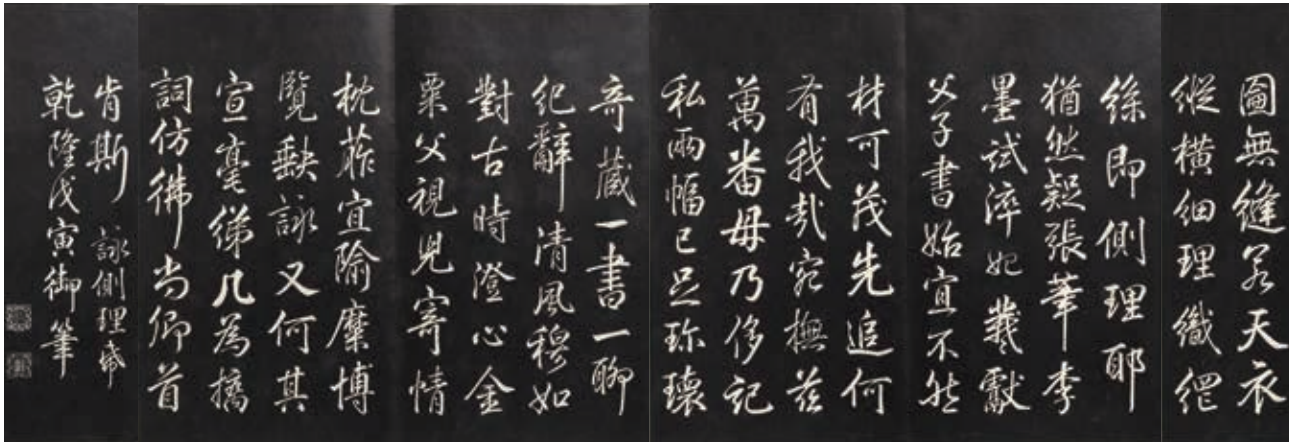 圇無縫若天衣
縱橫細理織網
絲即側理耶
猶然疑張華李
墨試淬妃羲獻
父子書始宜不然
材可茂先追何
有我哉宛撫茲
萬番毋乃侈記
私兩幅已足珍瓌
奇藏一書一聊
紀辭清風穆如
對古時澄心金
粟父視兒寄情
枕葄宜隃糜博
覽缺詠又何其
宣毫綈几為摛
詞仿彿尚卿首
肯斯 詠側理紙
乾隆戊寅御筆